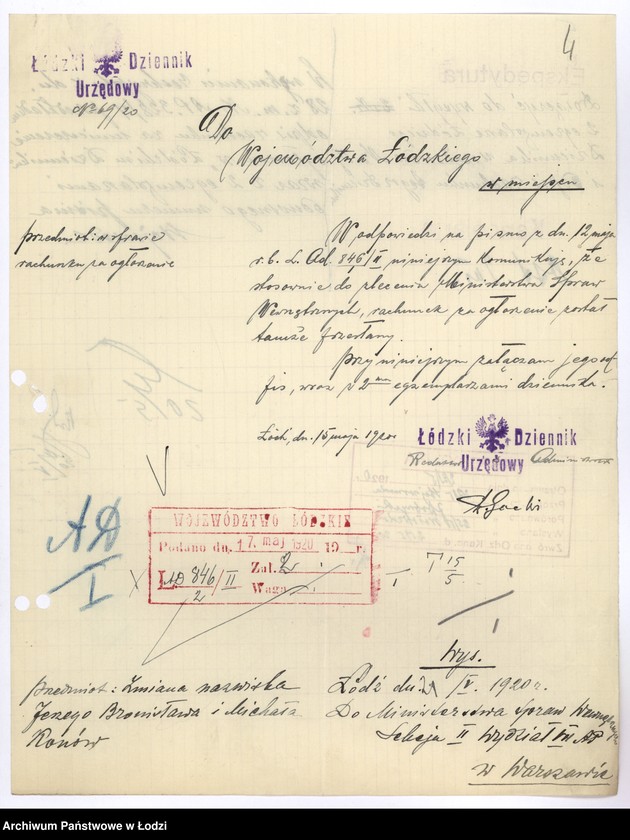 4
Łódzki Dziennik
Urzędowy
№ 69/20
Do
Województwa Łódzkiego
w miejscu
przedmiot: w sprawie
rachunku za ogłoszenie
W odpowiedzi na pismo z dn. 12 maja
r. b. L. AD. 846/II niniejszym komunikuję, że
stosownie do zlecenia Ministerstwa Spraw
Wewnętrznych, rachunek za ogłoszenie został
tamże przesłany.
Przy niniejszym załączam jego od
pis, wraz z 2ma egzemplarzami dziennika.
Łódź, dn. 15 maja 1920 r.
Łódzki Dziennik
Urzędowy
Redaktor
WOJEWÓDZTWO ŁÓDZKIE
Podano dn. 17. maj 1920 19 r.
L. AD 846/II Zał. 2
2 Waga
AD
I
I T 15/5
Wys.
Łódź dn. 21/V. 1920 r.
Do Ministerstwa Spraw Wewnętrznych
Sekcja II Wydział IV AP
w Warszawie
przedmiot: Zmiana nazwiska
Jerzego Bronisława i Michała
Konów
Archiwum Państwowe w Łodzi